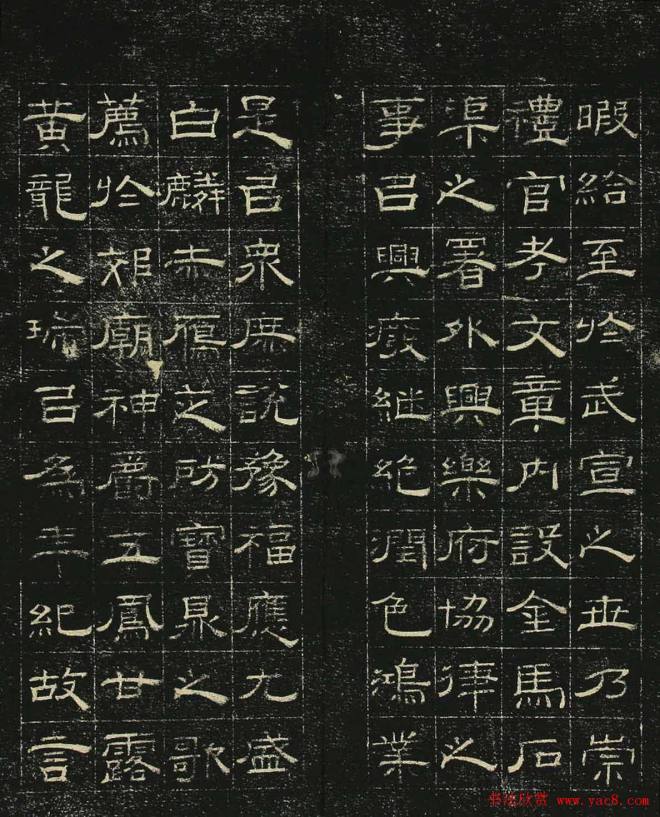 暇給至於武宣之世乃崇
禮官考文章內設金馬石
渠之署外興樂府協律之
事以興廢繼絕潤色鴻業
是以眾庶說豫福應尤盛
白麟赤雁芝房寶鼎之歌
薦於郊廟神爵五鳳甘露
黃龍之瑞以為年紀故言
书法欣赏 www.yac8.com